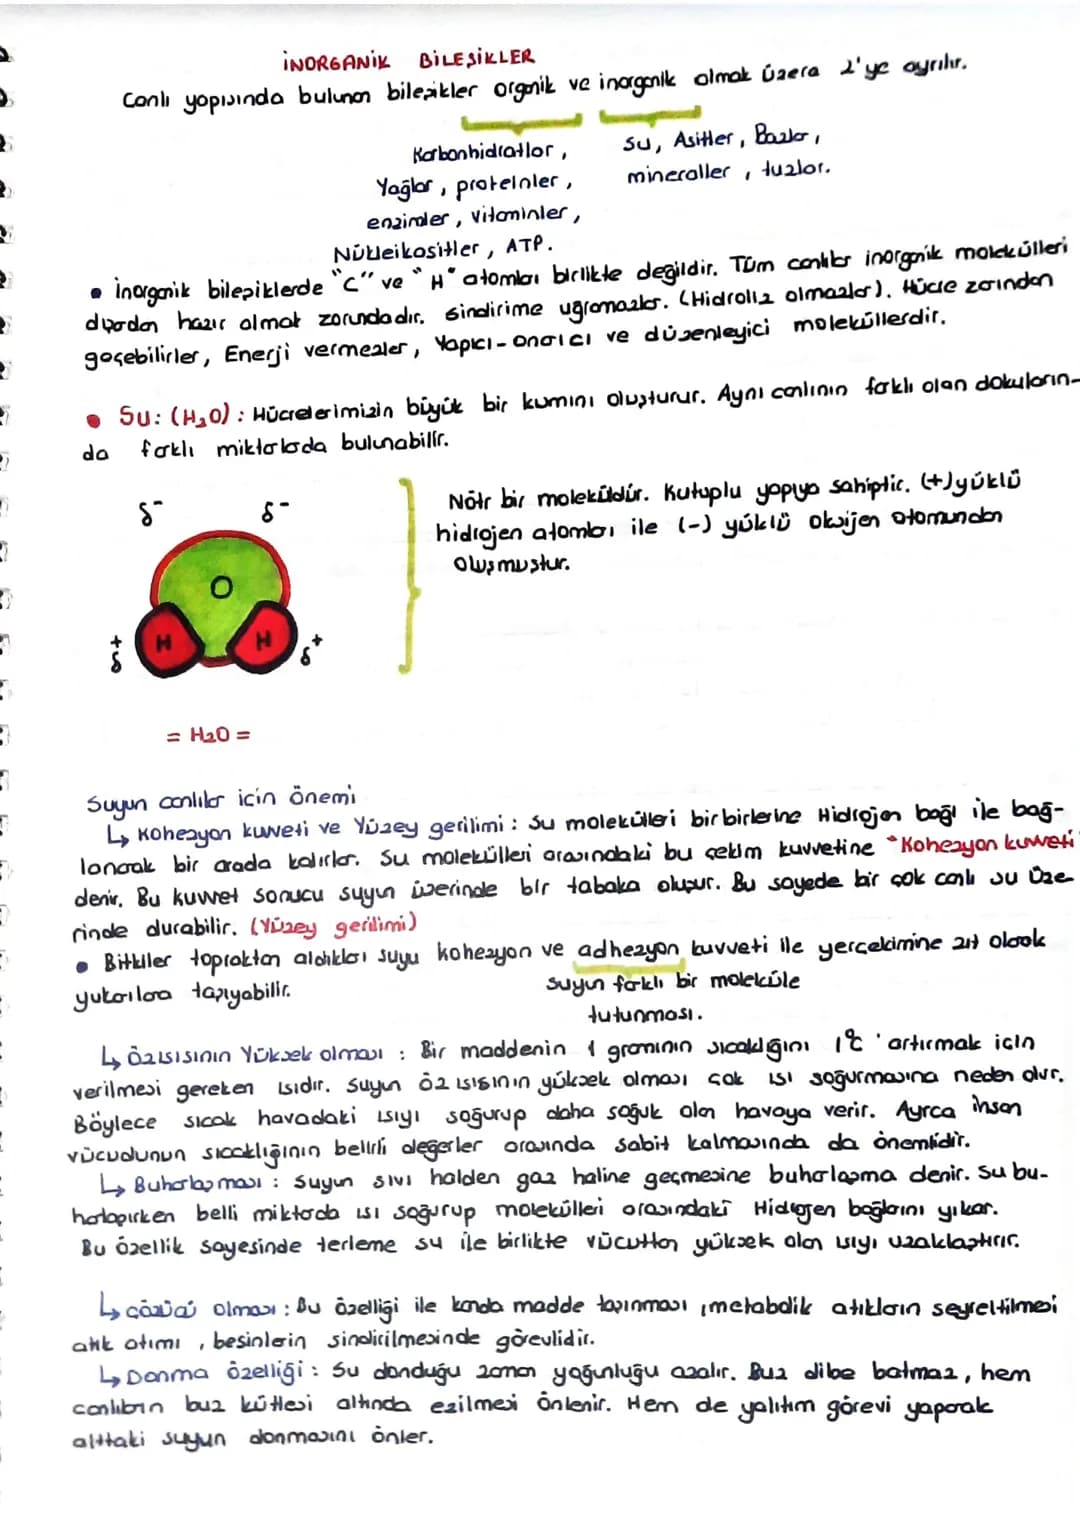 İNORGANİK BİLEŞİKLER
Canlı yapısında bulunan bileşikler organik ve inorganik olmak üzere 2'ye ayrılır.
Karbonhidratlar, Su, Asitler, Bazlar,
Yağlar, proteinler, mineraller, tuzlar.
enzimler, vitaminler,
Nükleikasitler, ATP.
• İnorganik bileşiklerde "C" ve "H" atomları birlikte değildir. Tüm canlılar inorganik molekülleri
dışardan hazır almak zorundadır. Sindirime uğramazlar. (Hidroliz olmazlar). Hücre zarından
geçebilirler, Enerji vermezler, Yapıcı-onarıcı ve düzenleyici moleküllerdir.
• Su: (H₂O): Hücrelerimizin büyük bir kumını oluşturur. Aynı canlının farklı olan dokuların-
da farklı miktarlada bulunabilir.
δ- δ-
O
H H
δ+ δ+
= H₂O =
Nötr bir moleküldür. Kutuplu yapıya sahiptir. (+) yüklü
hidrojen atomları ile (-) yüklü oksijen atomundan
oluşmuştur.
Suyun canlılar için önemi
↳ Kohezyon kuvveti ve Yüzey gerilimi: Su molekülleri birbirlerine Hidrojen bağı ile bağ-
lanarak bir arada kalırlar. Su molekülleri arasındaki bu çekim kuvvetine "Kohezyon kuvveti"
denir. Bu kuvvet sonucu suyun üzerinde bir tabaka oluşur. Bu sayede bir çok canlı su üze-
rinde durabilir. (Yüzey gerilimi)
• Bitkiler topraktan aldıkları suyu kohezyon ve adhezyon kuvveti ile yerçekimine zıt olarak
yukarılara taşıyabilir. suyun farklı bir moleküle
tutunması.
↳ Özısısının Yüksek olması: Bir maddenin 1 gramının sıcaklığını 1°C 'artırmak için
verilmesi gereken ısıdır. Suyun öz ısısının yüksek olması çok ısı soğurmasına neden olur.
Böylece sıcak havadaki ısıyı soğurup daha soğuk olan havaya verir. Ayrca insan
vücudunun sıcaklığının belirli değerler arasında sabit kalmasında da önemlidir.
↳ Buharlaşması: Suyun sıvı halden gaz haline geçmesine buharlaşma denir. Su bu-
harlaşırken belli miktarda ısı soğurup molekülleri arasındaki Hidrojen bağlarını yıkar.
Bu özellik sayesinde terleme su ile birlikte vücuttan yüksek olan ısıyı uzaklaştırır.
↳ Çözücü olması: Bu özelliği ile kanda madde taşınması, metabolik atıkların seyreltilmesi
atık atımı, besinlerin sindirilmesinde görevlidir.
↳ Donma özelliği: Su donduğu zaman yoğunluğu azalır. Buz dibe batmaz, hem
canlıların buz kütlesi altında ezilmesi önlenir. Hem de yalıtım görevi yaparak
alttaki suyun donmasını önler.